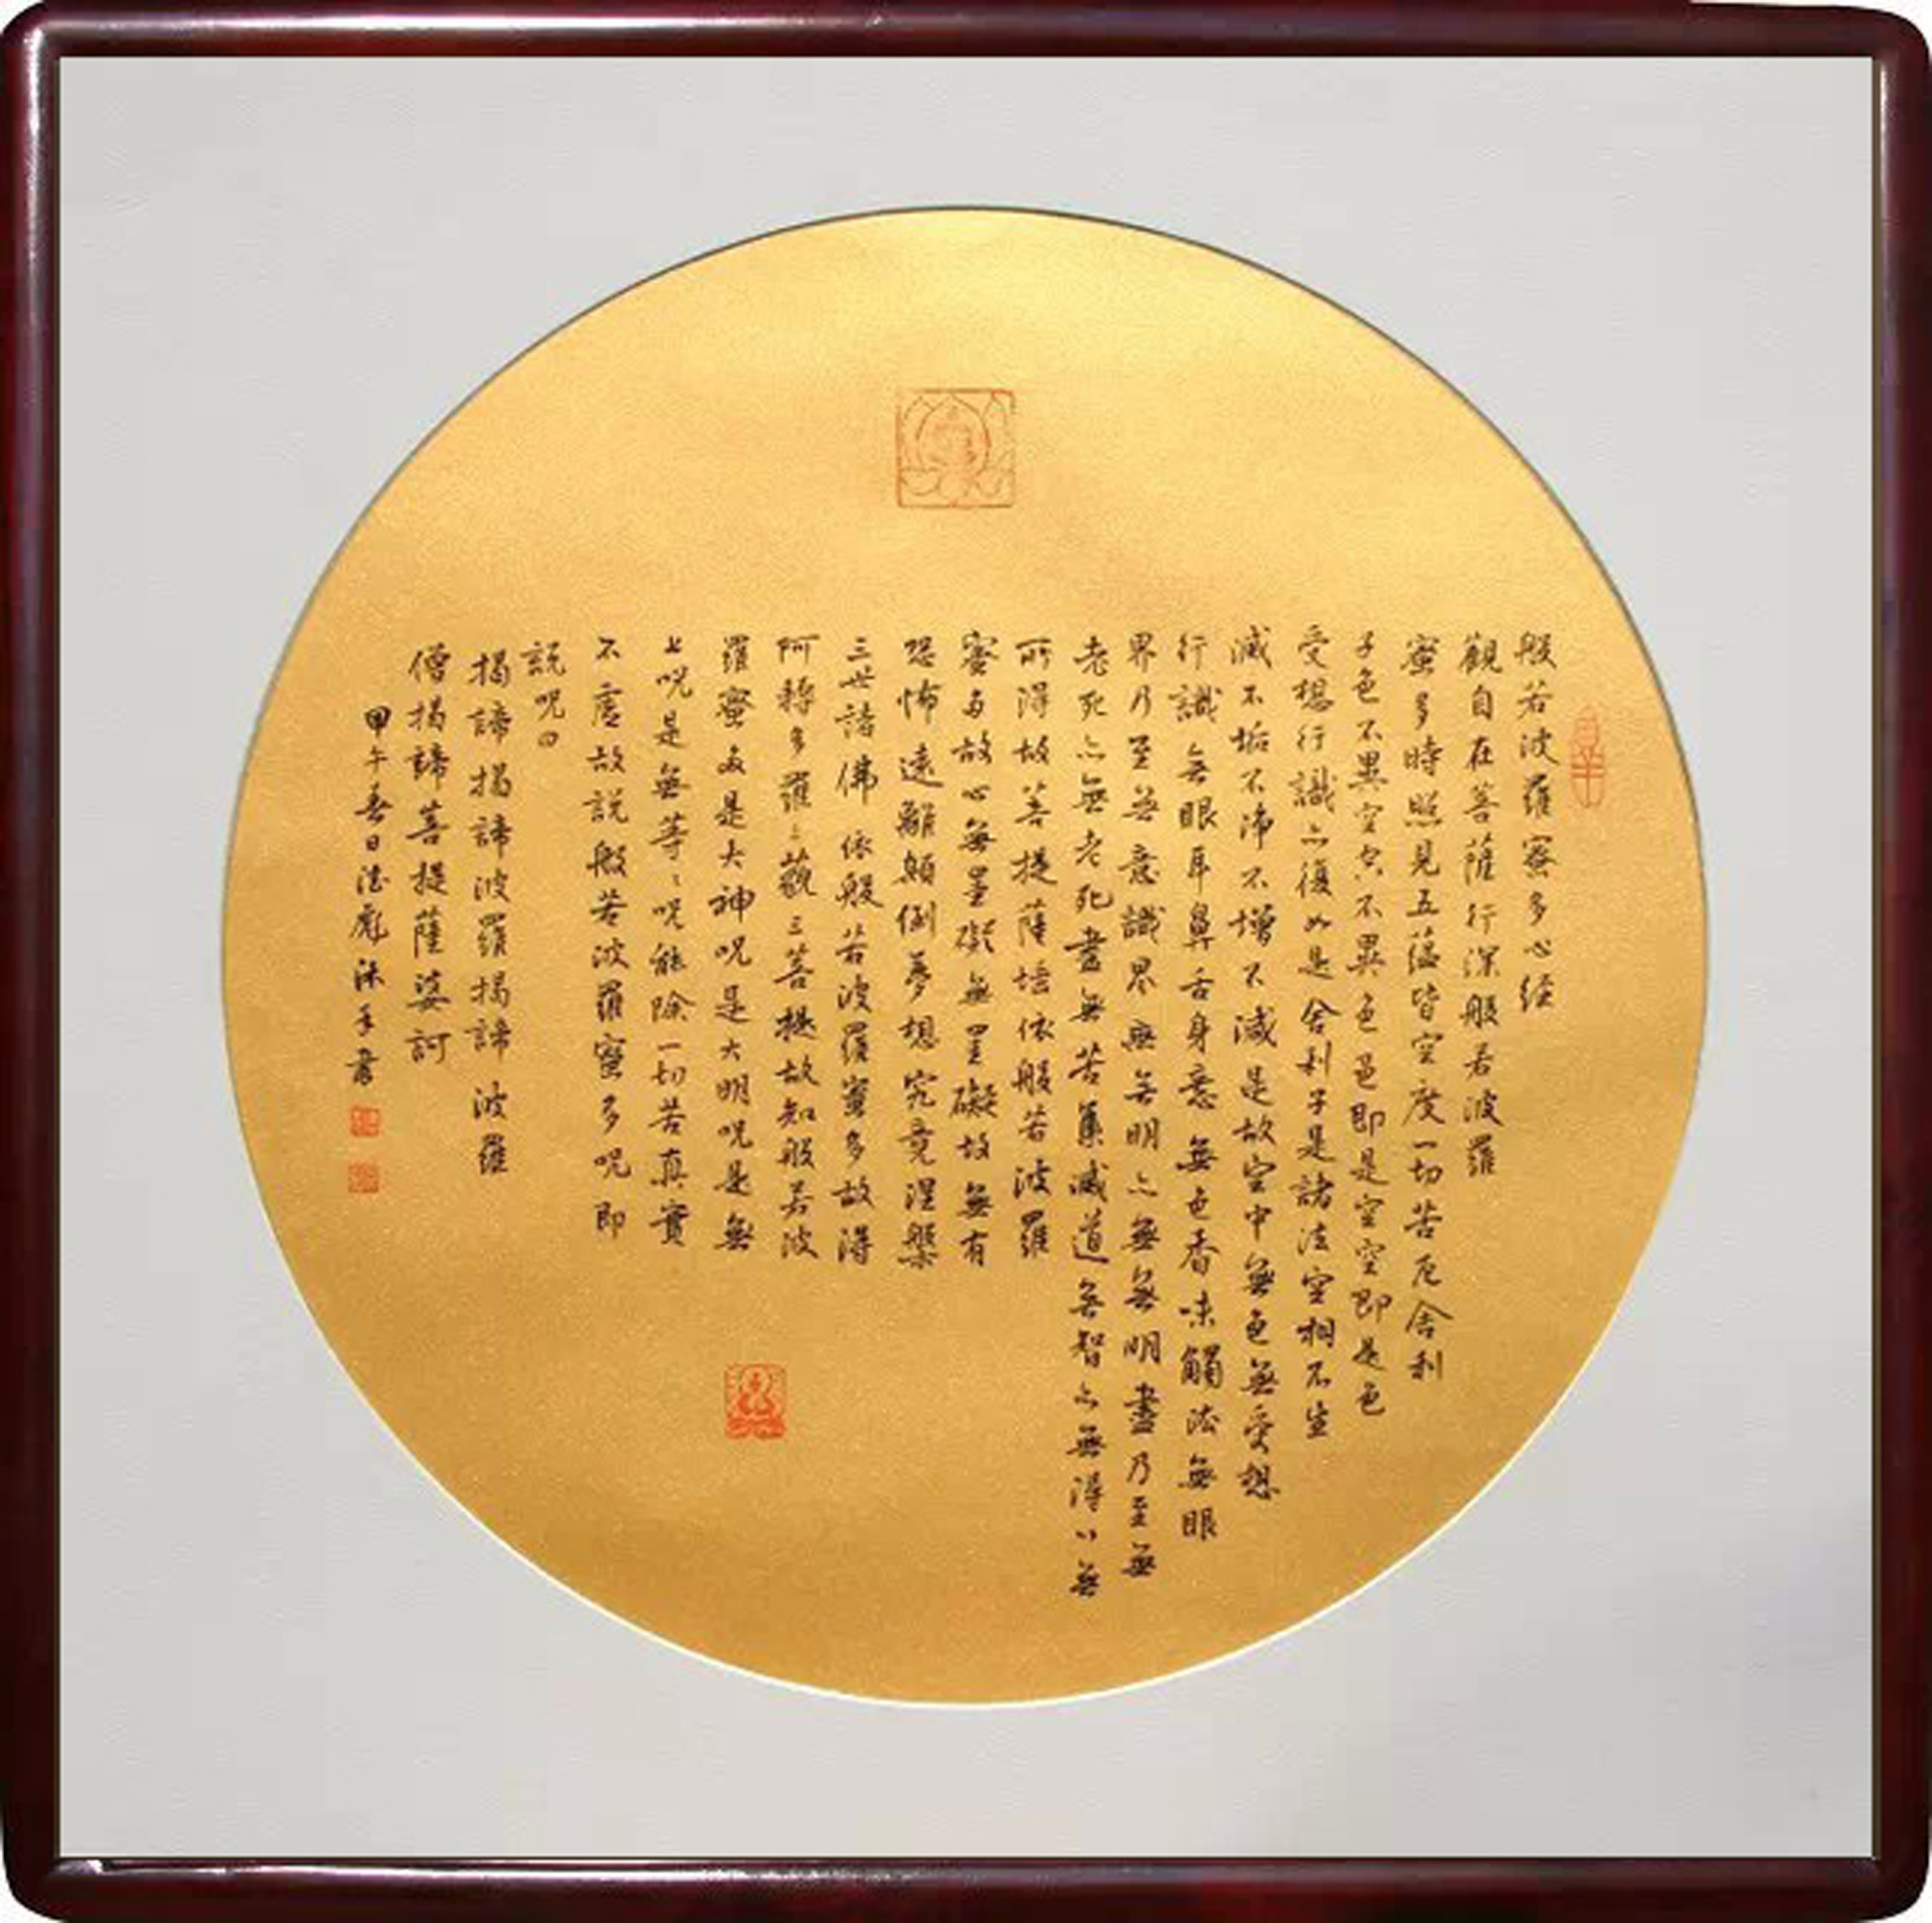 般若波羅蜜多心经
觀自在菩薩行深般若波羅
蜜多時照見五蕴皆空度一切苦厄舍利
子色不異空空不異色色即是空空即是色
受想行識亦復如是舍利子是諸法空相不生
滅不垢不净不增不減是故空中無色無受想
行識無眼耳鼻舌身意無色香味觸法無眼
界乃至無意識界無無明亦無無明盡乃至無
老死亦無老死盡無苦集滅道無智亦無得以無
所得故菩提薩埵依般若波羅
蜜多故心無罣礙無罣礙故無有
恐怖遠離顛倒夢想究竟涅槃
三世諸佛依般若波羅蜜多故得
阿耨多羅三藐三菩提故知般若波
羅蜜多是大神呪是大明呪是無
上呪是無等々呪能除一切苦真實
不虚故説般若波羅蜜多呪即
説呪曰
揭諦揭諦波羅揭諦波羅
僧揭諦菩提薩婆訶
甲午春日法彪沐手書